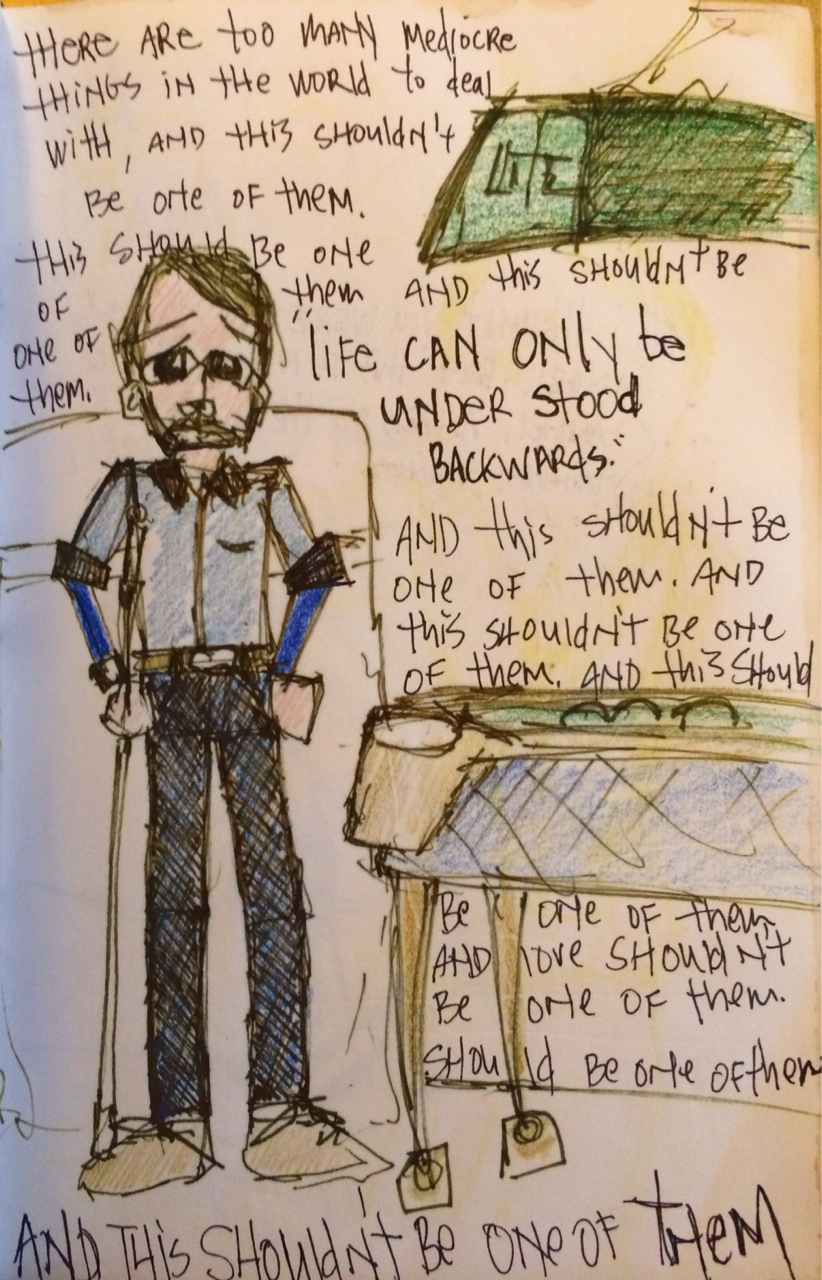 tHERE ARE too MANY MediOCRE
tHINGS IN tHE WORLD to deal
With, AND tHiS SHOUldN't
Be ONe OF tHem.
tHiS SHOUld Be ONe
OF them
ONE OF
tHem.
LITE
AND this SHOUldN't Be
"life CAN ONly be
UNDER Stood
BACKWARds."
AND this SHOUldN't Be
ONe OF them. AND
this SHOUldN't Be ONe
OF them. AND this SHOUld
Be ONe OF them,
AND love SHOUldN't
Be ONe OF them.
SHOUld Be ONe OF them
AND THiS SHOUldN't Be ONE OF tHeM